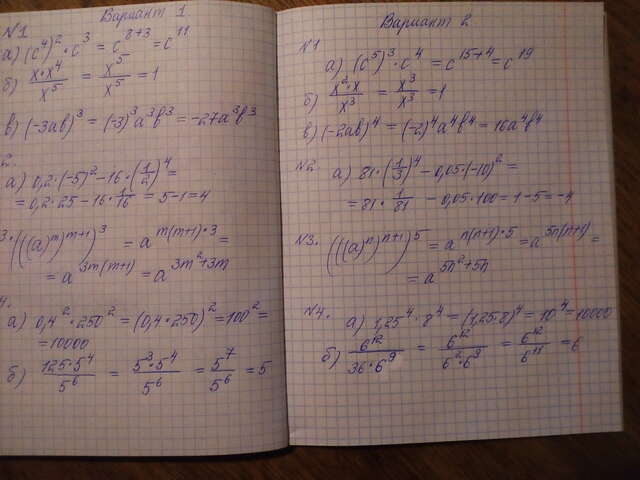 Вариант 1
№1
а) (c⁴)²·c³ = c⁸⁺³ = c¹¹
б) x·x⁴/x⁵ = x⁵/x⁵ = 1
в) (-3ab)³ = (-3)³a³b³ = -27a³b³
2.
а) 0,2·(-5)² - 16·(1/2)⁴ =
= 0,2·25 - 16·1/16 = 5-1 = 4
3. (((a)ᵐ)ᵐ⁺¹)³ = a^m(m+1)·3 =
= a^3m(m+1) = a^3m²+3m
4.
а) 0,4²·250² = (0,4·250)² = 100² =
= 10000
б) 125·5⁴/5⁶ = 5³·5⁴/5⁶ = 5⁷/5⁶ = 5
Вариант 2
№1
а) (c⁵)³·c⁴ = c¹⁵⁺⁴ = c¹⁹
б) x²·x/x³ = x³/x³ = 1
в) (-2ab)⁴ = (-2)⁴a⁴b⁴ = 16a⁴b⁴
№2 а) 81·(1/3)⁴ - 0,05·(-10)² =
= 81·1/81 - 0,05·100 = 1-5 = -4
№3. (((a)ⁿ)ⁿ⁺¹)⁵ = a^n(n+1)·5 = a^5n(n+1) =
= a^5n²+5n
№4. а) 1,25⁴·8⁴ = (1,25·8)⁴ = 10⁴ = 10000
б) 6¹²/36·6⁹ = 6¹²/6²·6⁹ = 6¹²/6¹¹ = 6